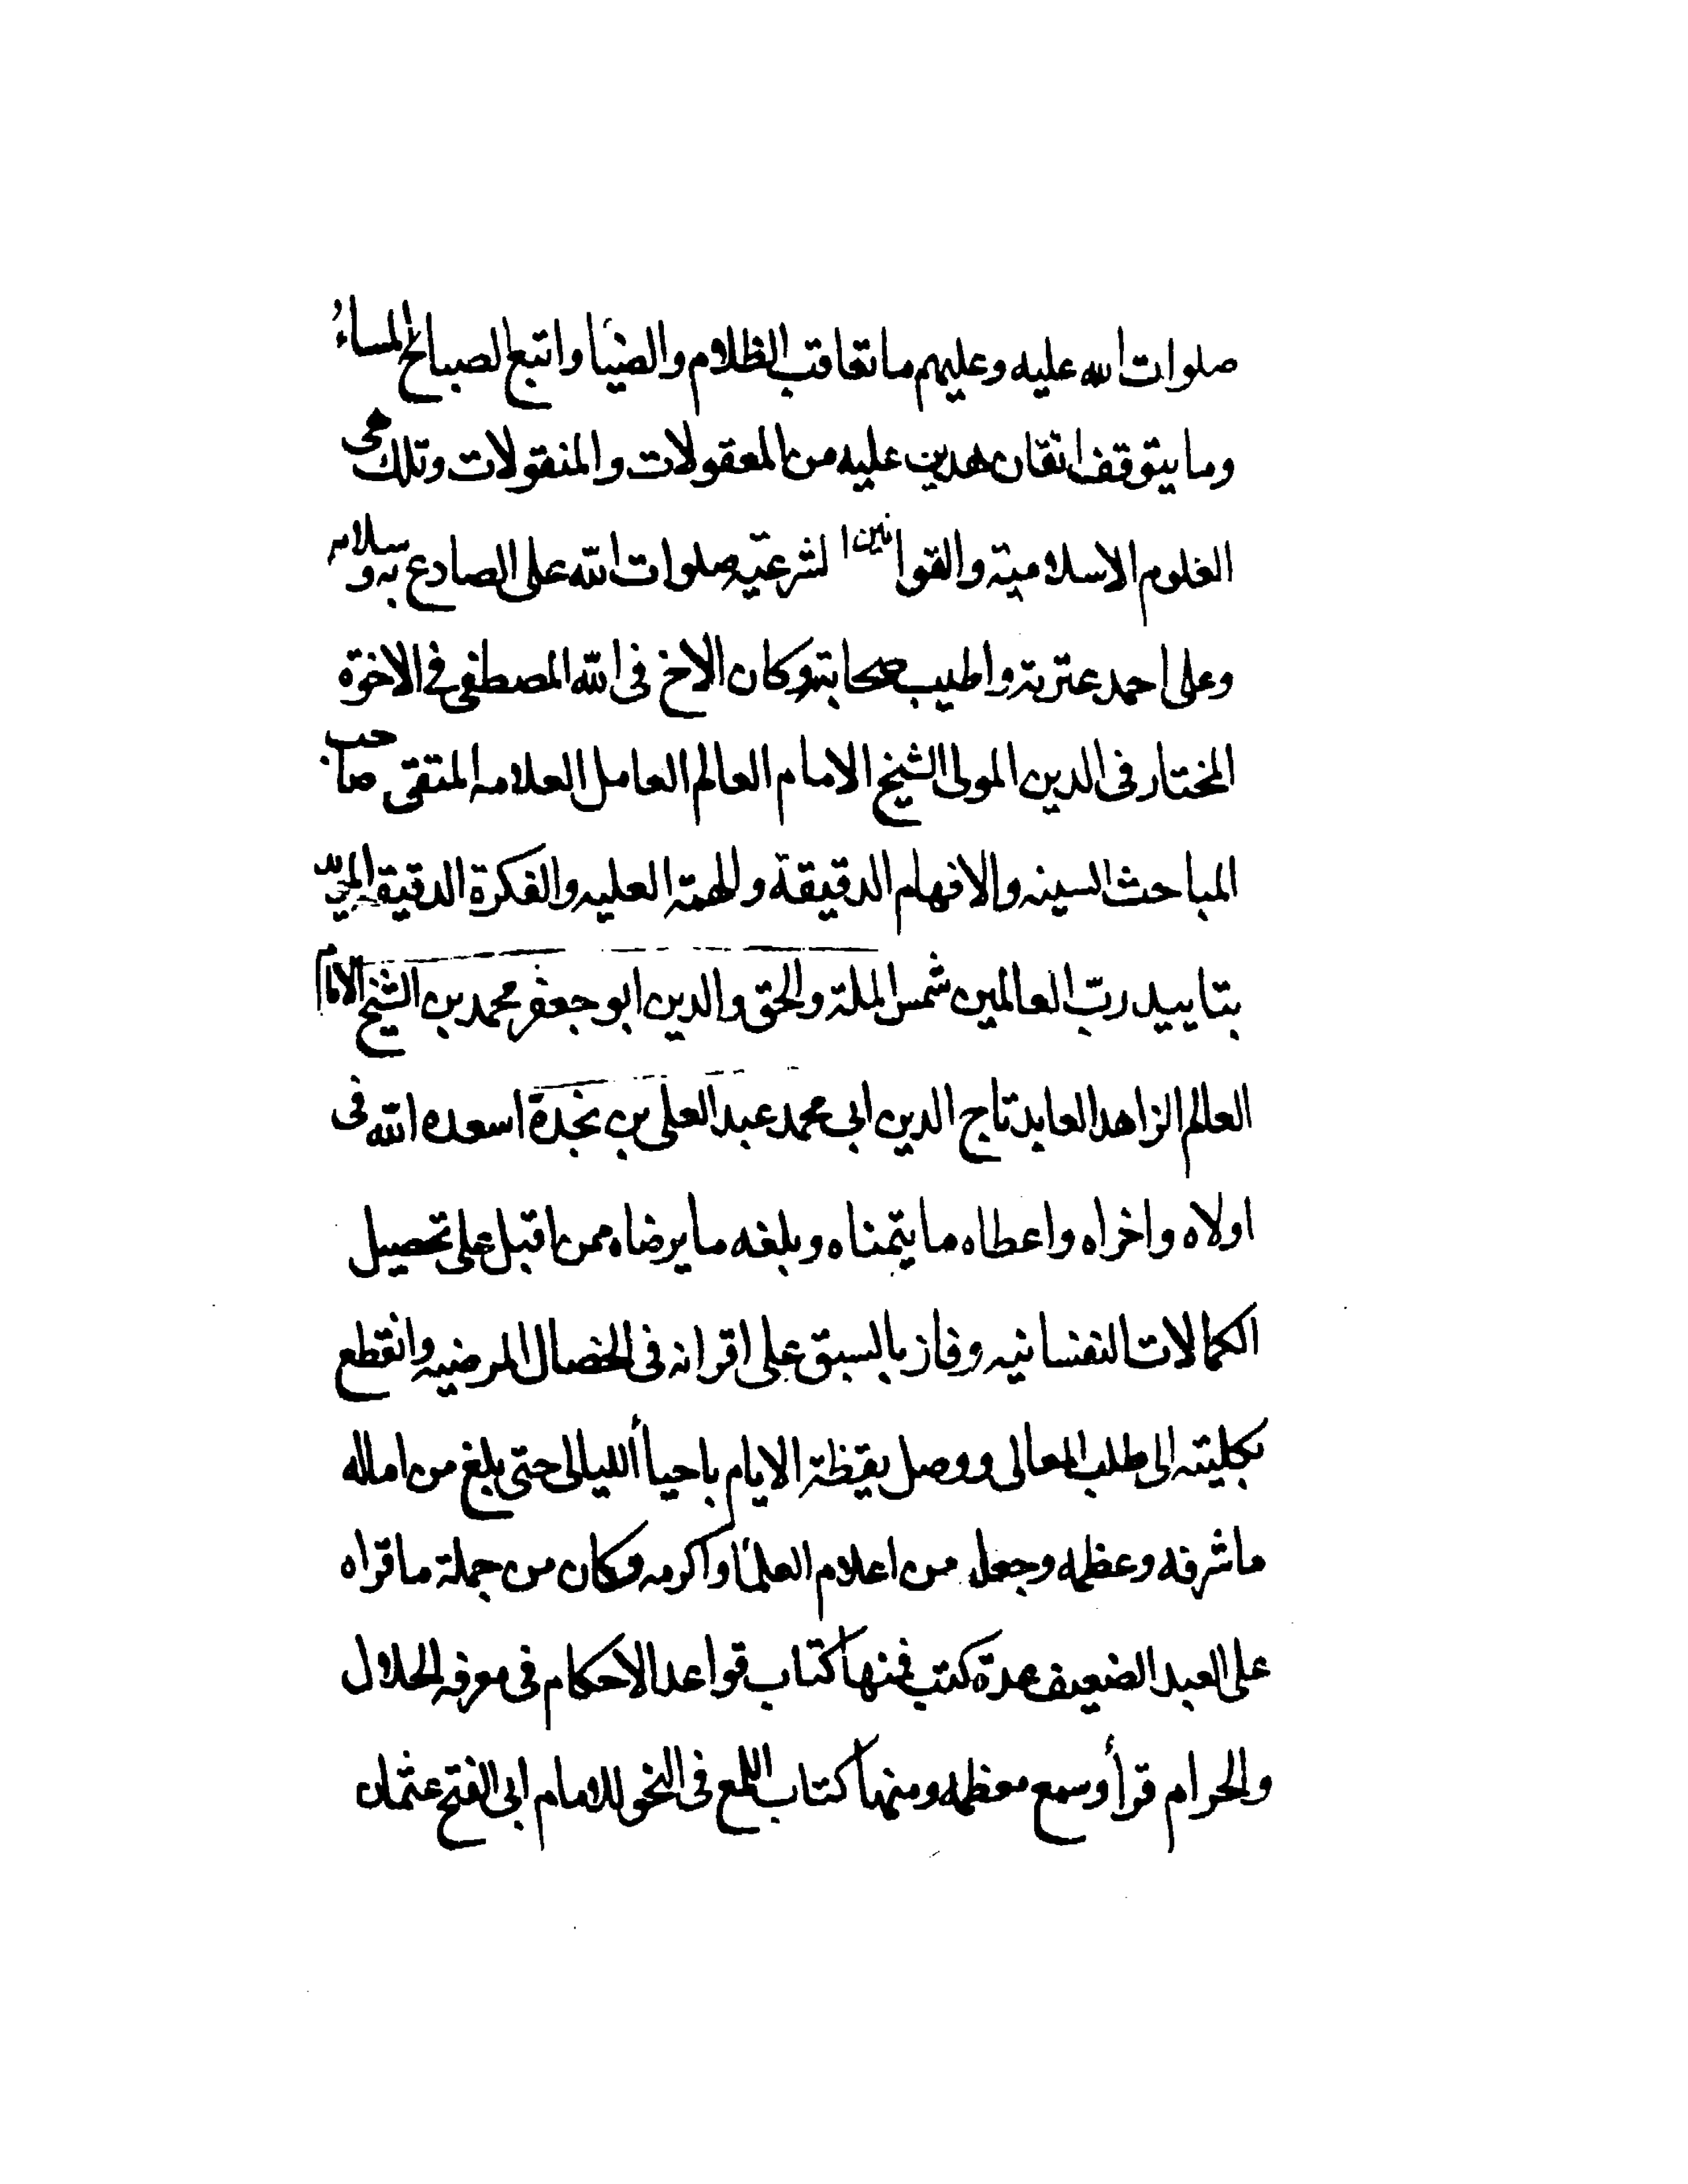 صلوات الله عليه وعليهم ما تعاقب الظلام والضيا واتبع الصباح المساء
وما يتوقف اتقان هدين عليه من المعقولات والمنقولات وتلك هى
العلوم الاسلامية والقوانين الشرعيّه صلوات الله على الصادع به وسلامه
وعلى احمد عترته واطيب صحابته وكان الاخ فى الله المصطفى فى الاخوّة
المختار فى الدين المولى الشيخ الامام العالم العامل العلامه المتقى صاحب
المباحث السينه والافهام الدقيقة والهمة العليه والفكرة الدقيقة
بتاييد ربّ العالمين شمس الملة والحق والدين ابو جعفر محمد بن الشيخ الامام
العالم الزاهد العابد تاج الدين ابى محمد عبد العلى بن نجدة اسعده الله فى
اولاه واخراه واعطاه ما يتمناه وبلغه ما يرضاه ممن اقبل على تحصيل
الكمالات النفسانيه وفاز بالسبق على اقرانه فى الخصال المرضيه وانقطع
بكليته الى طلب المعالى ووصل يقظة الايام باحيا الليالى حتى بلغ من اماله
ما شرفه وعظمه وجعل من اعلام العلما واكرمه وكان من جملة ما قراه
على العبد الضعيف عدة كتب فمنها كتاب قواعد الاحكام فى معرفه الحلال
والحرام قرأ وسمع معظمه ومنها كتاب اللمع فى النحو للامام ابى الفتح عثمان